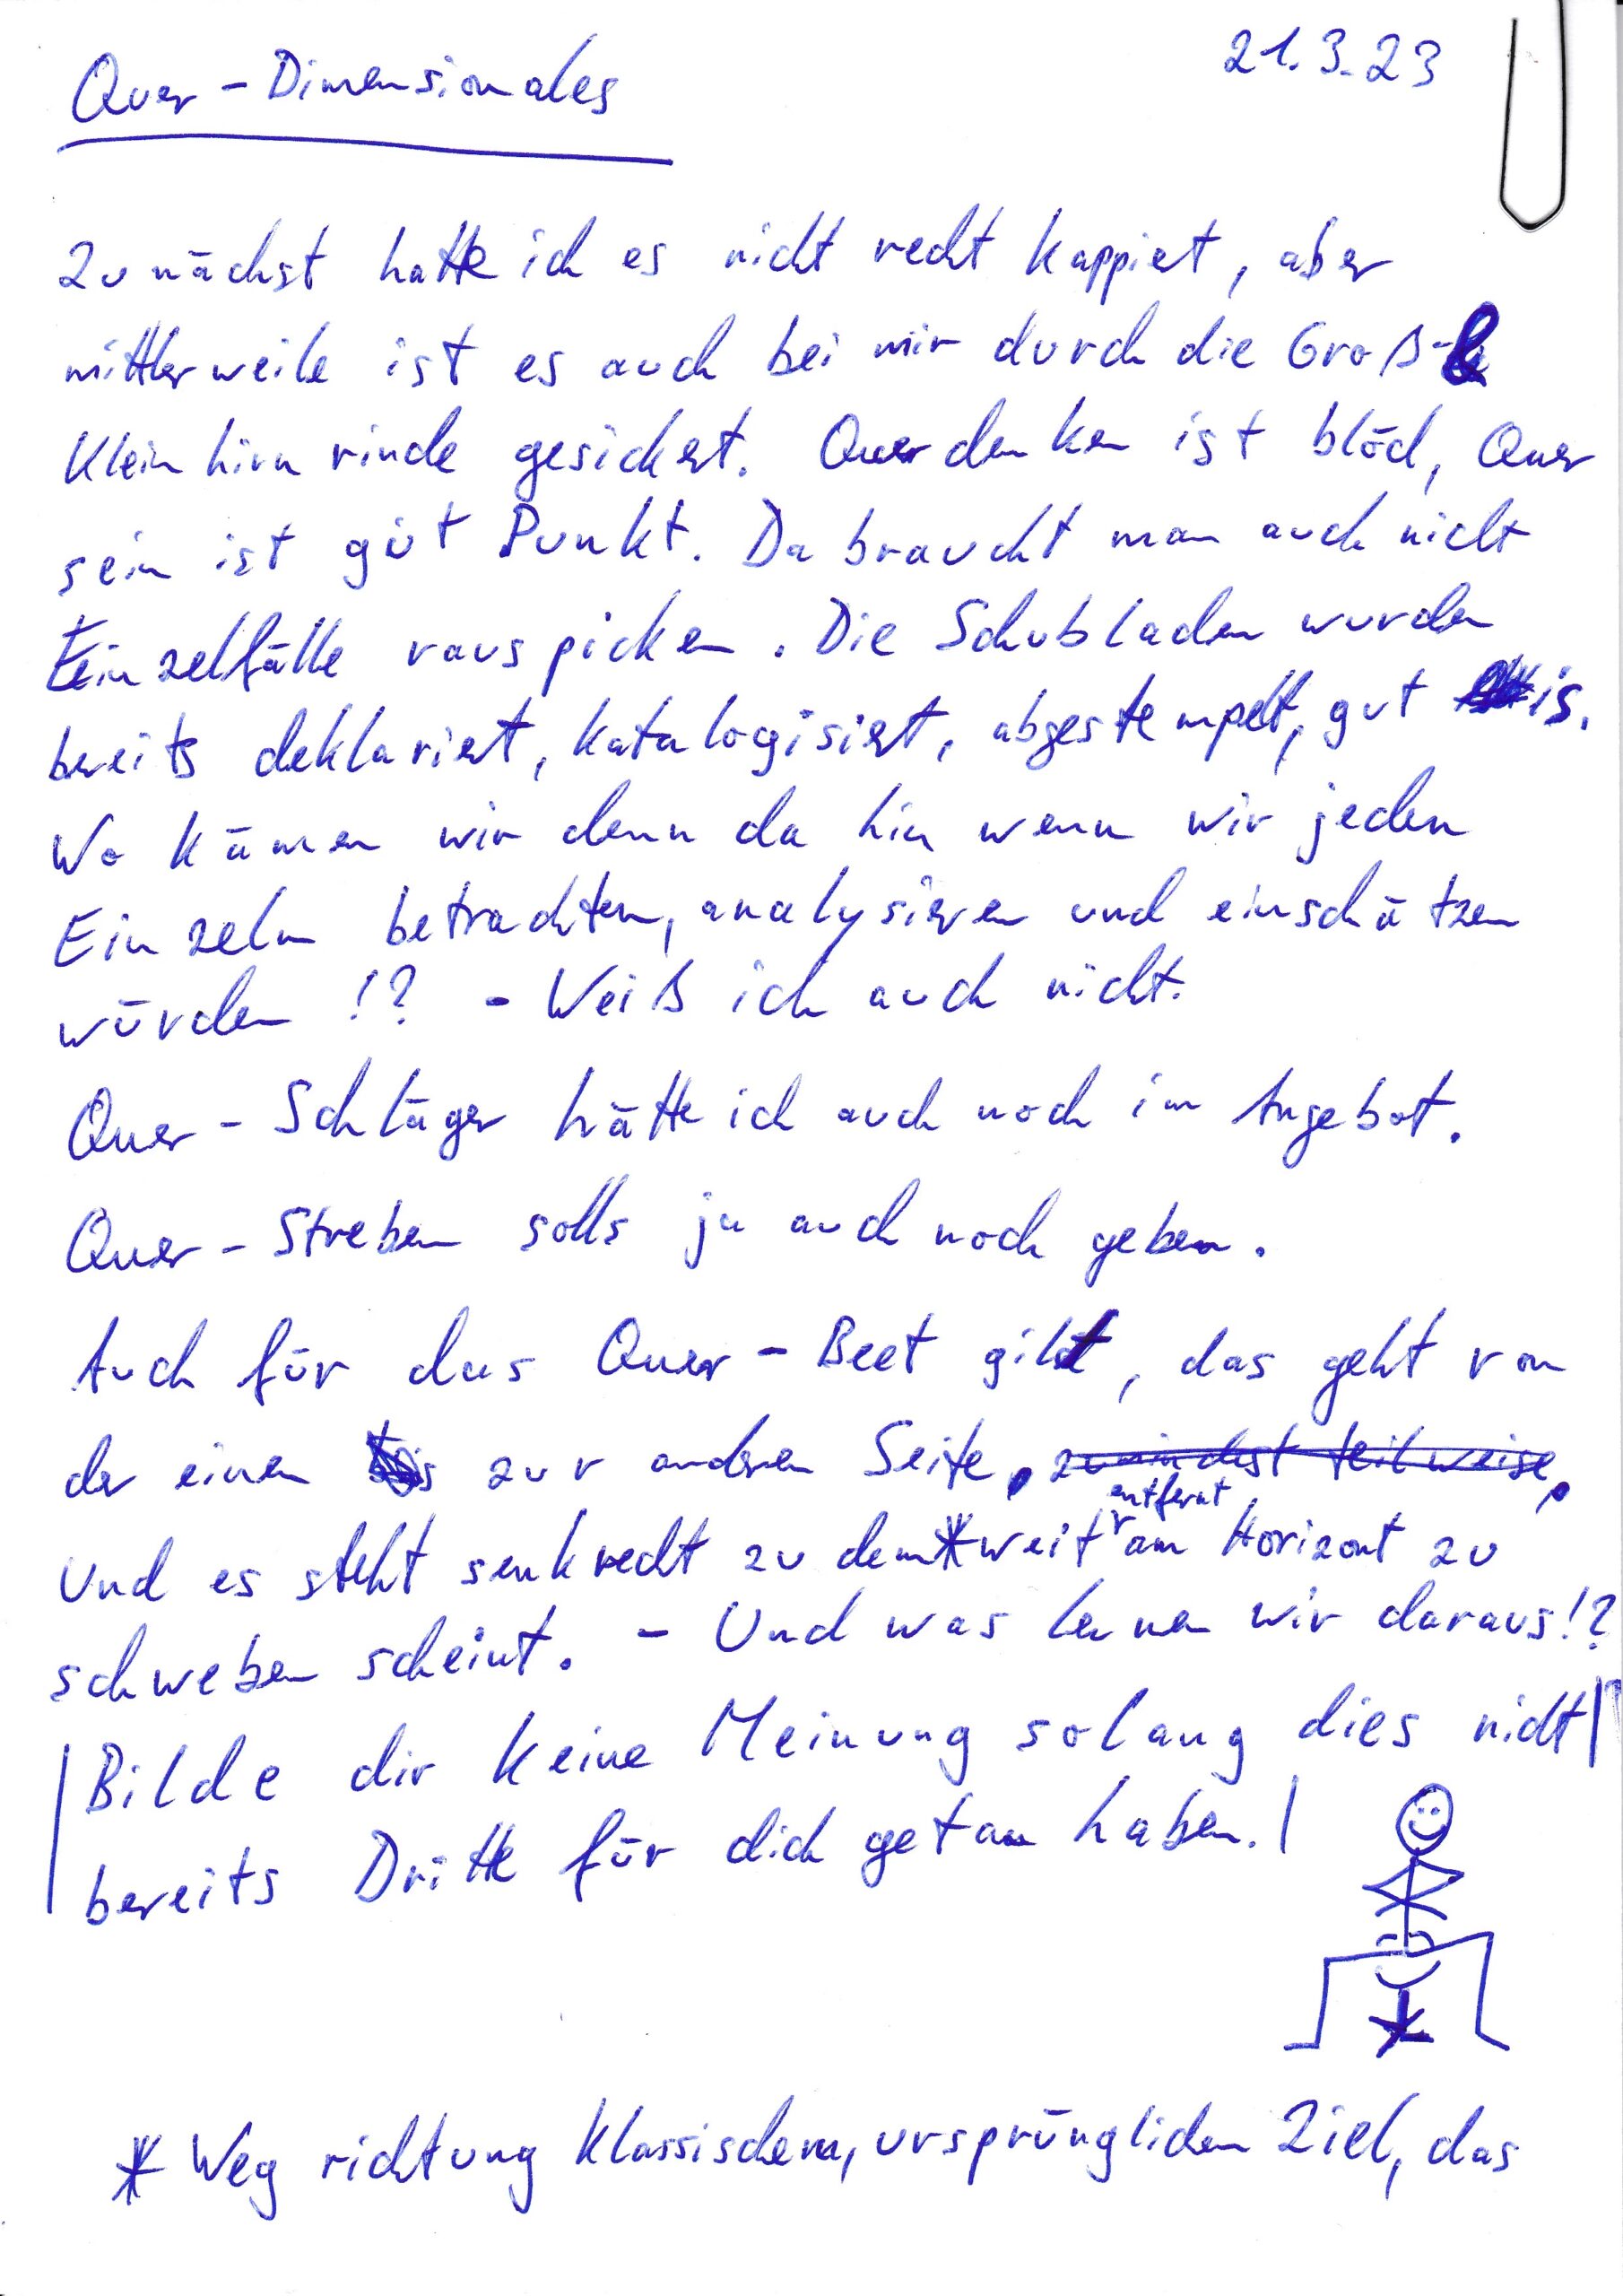 Quer-Dimensionales
21.3.23
Zunächst hatte ich es nicht recht kappiert, aber
mittlerweile ist es auch bei mir durch die Groß-&
Kleinhirnrinde gesickert. Querdenken ist blöd, Quer
sein ist gut Punkt. Da braucht man auch nicht
Einzelfälle rauspicken. Die Schubladen wurden
bereits deklariert, katalogisiert, abgestempelt, gut is.
Wo kämen wir denn da hin wenn wir jeden
Einzeln betrachten, analysieren und einschätzen
würden !? - Weiß ich auch nicht.
Quer-Schläger hätte ich auch noch im Angebot.
Quer-Streben solls ja auch noch geben.
Auch für das Quer-Beet gilt, das geht von
der einen zur anderen Seite, zumindest teilweise,
entfernt
Und es steht senkrecht zu dem* weit am Horizont zu
schweben scheint. - Und was lernen wir daraus!?
|Bilde dir keine Meinung solang dies nicht|
bereits Dritte für dich getan haben.|
* Wegrichtung klassischem, ursprünglichen Ziel, das